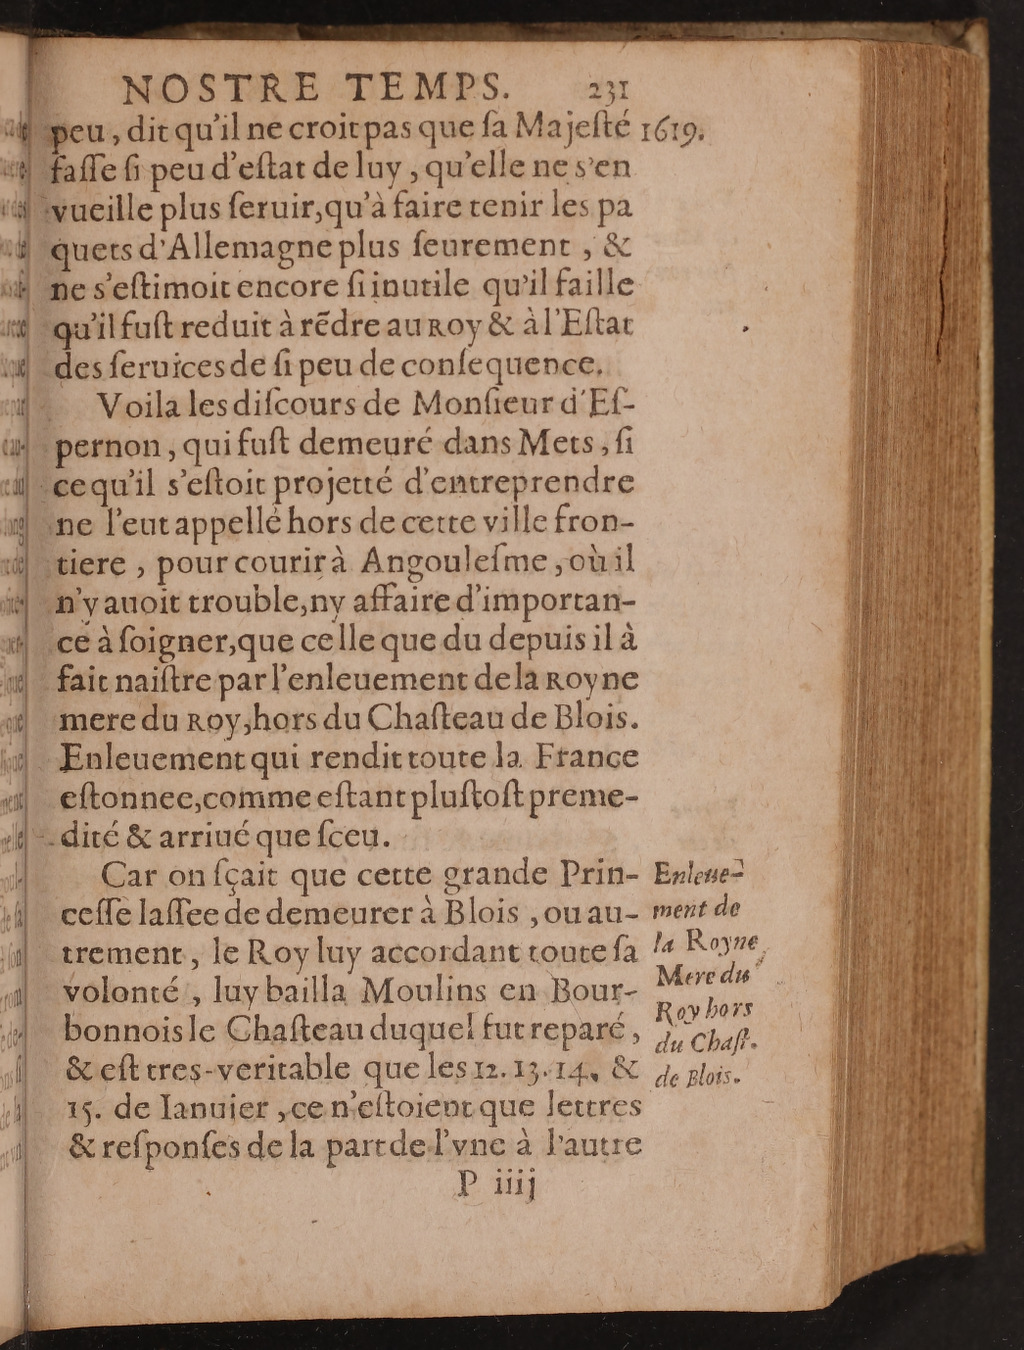 NOSTRE TEMPS. 231
peu, dit qu'il ne croit pas que ſa Majeſté 1619.
faſſe ſi peu d'eſtat de luy, qu'elle ne s'en
vueille plus ſeruir, qu'à faire tenir les pa
quets d'Allemagne plus ſeurement, &
ne s'eſtimoit encore ſi inutile qu'il faille
qu'il fuſt reduit à rẽdre au roy & à l'Eſtat
des ſeruices de ſi peu de conſequence.
Voila les diſcours de Monſieur d'Eſ-
pernon, qui fuſt demeuré dans Mets, ſi
ce qu'il s'eſtoit projetté d'entreprendre
ne l'eut appellé hors de cette ville fron-
tiere, pour courir à Angouleſme, où il
n'y auoit trouble, ny affaire d'importan-
ce à ſoigner, que celle que du depuis il à
fait naiſtre par l'enleuement de la royne
mere du roy, hors du Chaſteau de Blois.
Enleuement qui rendit toute la France
eſtonnee, comme eſtant pluſtoſt preme-
dité & arriué que ſceu.
Car on ſçait que cette grande Prin-
ceſſe laſſee de demeurer à Blois, ou au-
trement, le Roy luy accordant toute ſa
volonté, luy bailla Moulins en Bour-
bonnois le Chaſteau duquel fut reparé,
& eſt tres-veritable que les 12. 13. 14. &
15. de Ianuier, ce n'eſtoient que lettres
& reſponſes de la part de l'vne à l'autre
P iiij
Enleue-
ment de
la Royne
Mere du
Roy hors
du Chaſt.
de Blois.